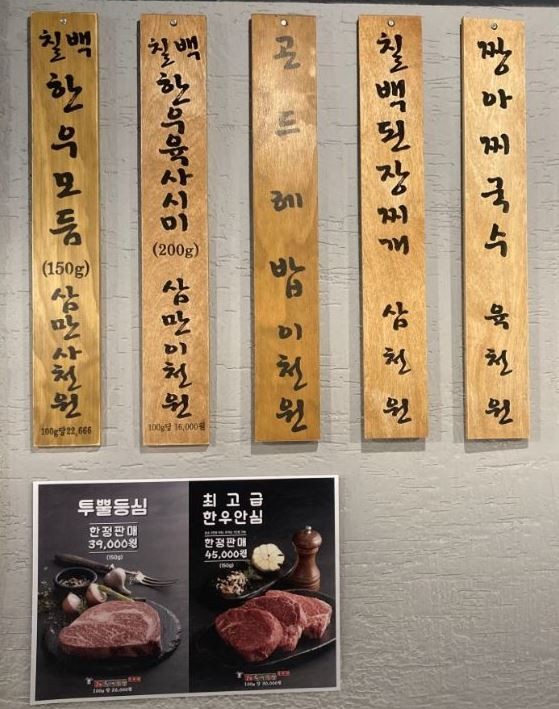 칠백
한우모듬
(150g)
삼만사천원
100g당 22,666
칠백
한우육사시미
(200g)
삼만이천원
100g당 16,000원
곤드레밥 이천원
칠백된장찌개 삼천원
짱아찌국수 육천원
투뿔등심
한정판매
39,000원
(150g)
100g 당 26,000원
최고급
한우안심
한정판매
45,000원
(150g)
100g 당 30,000원